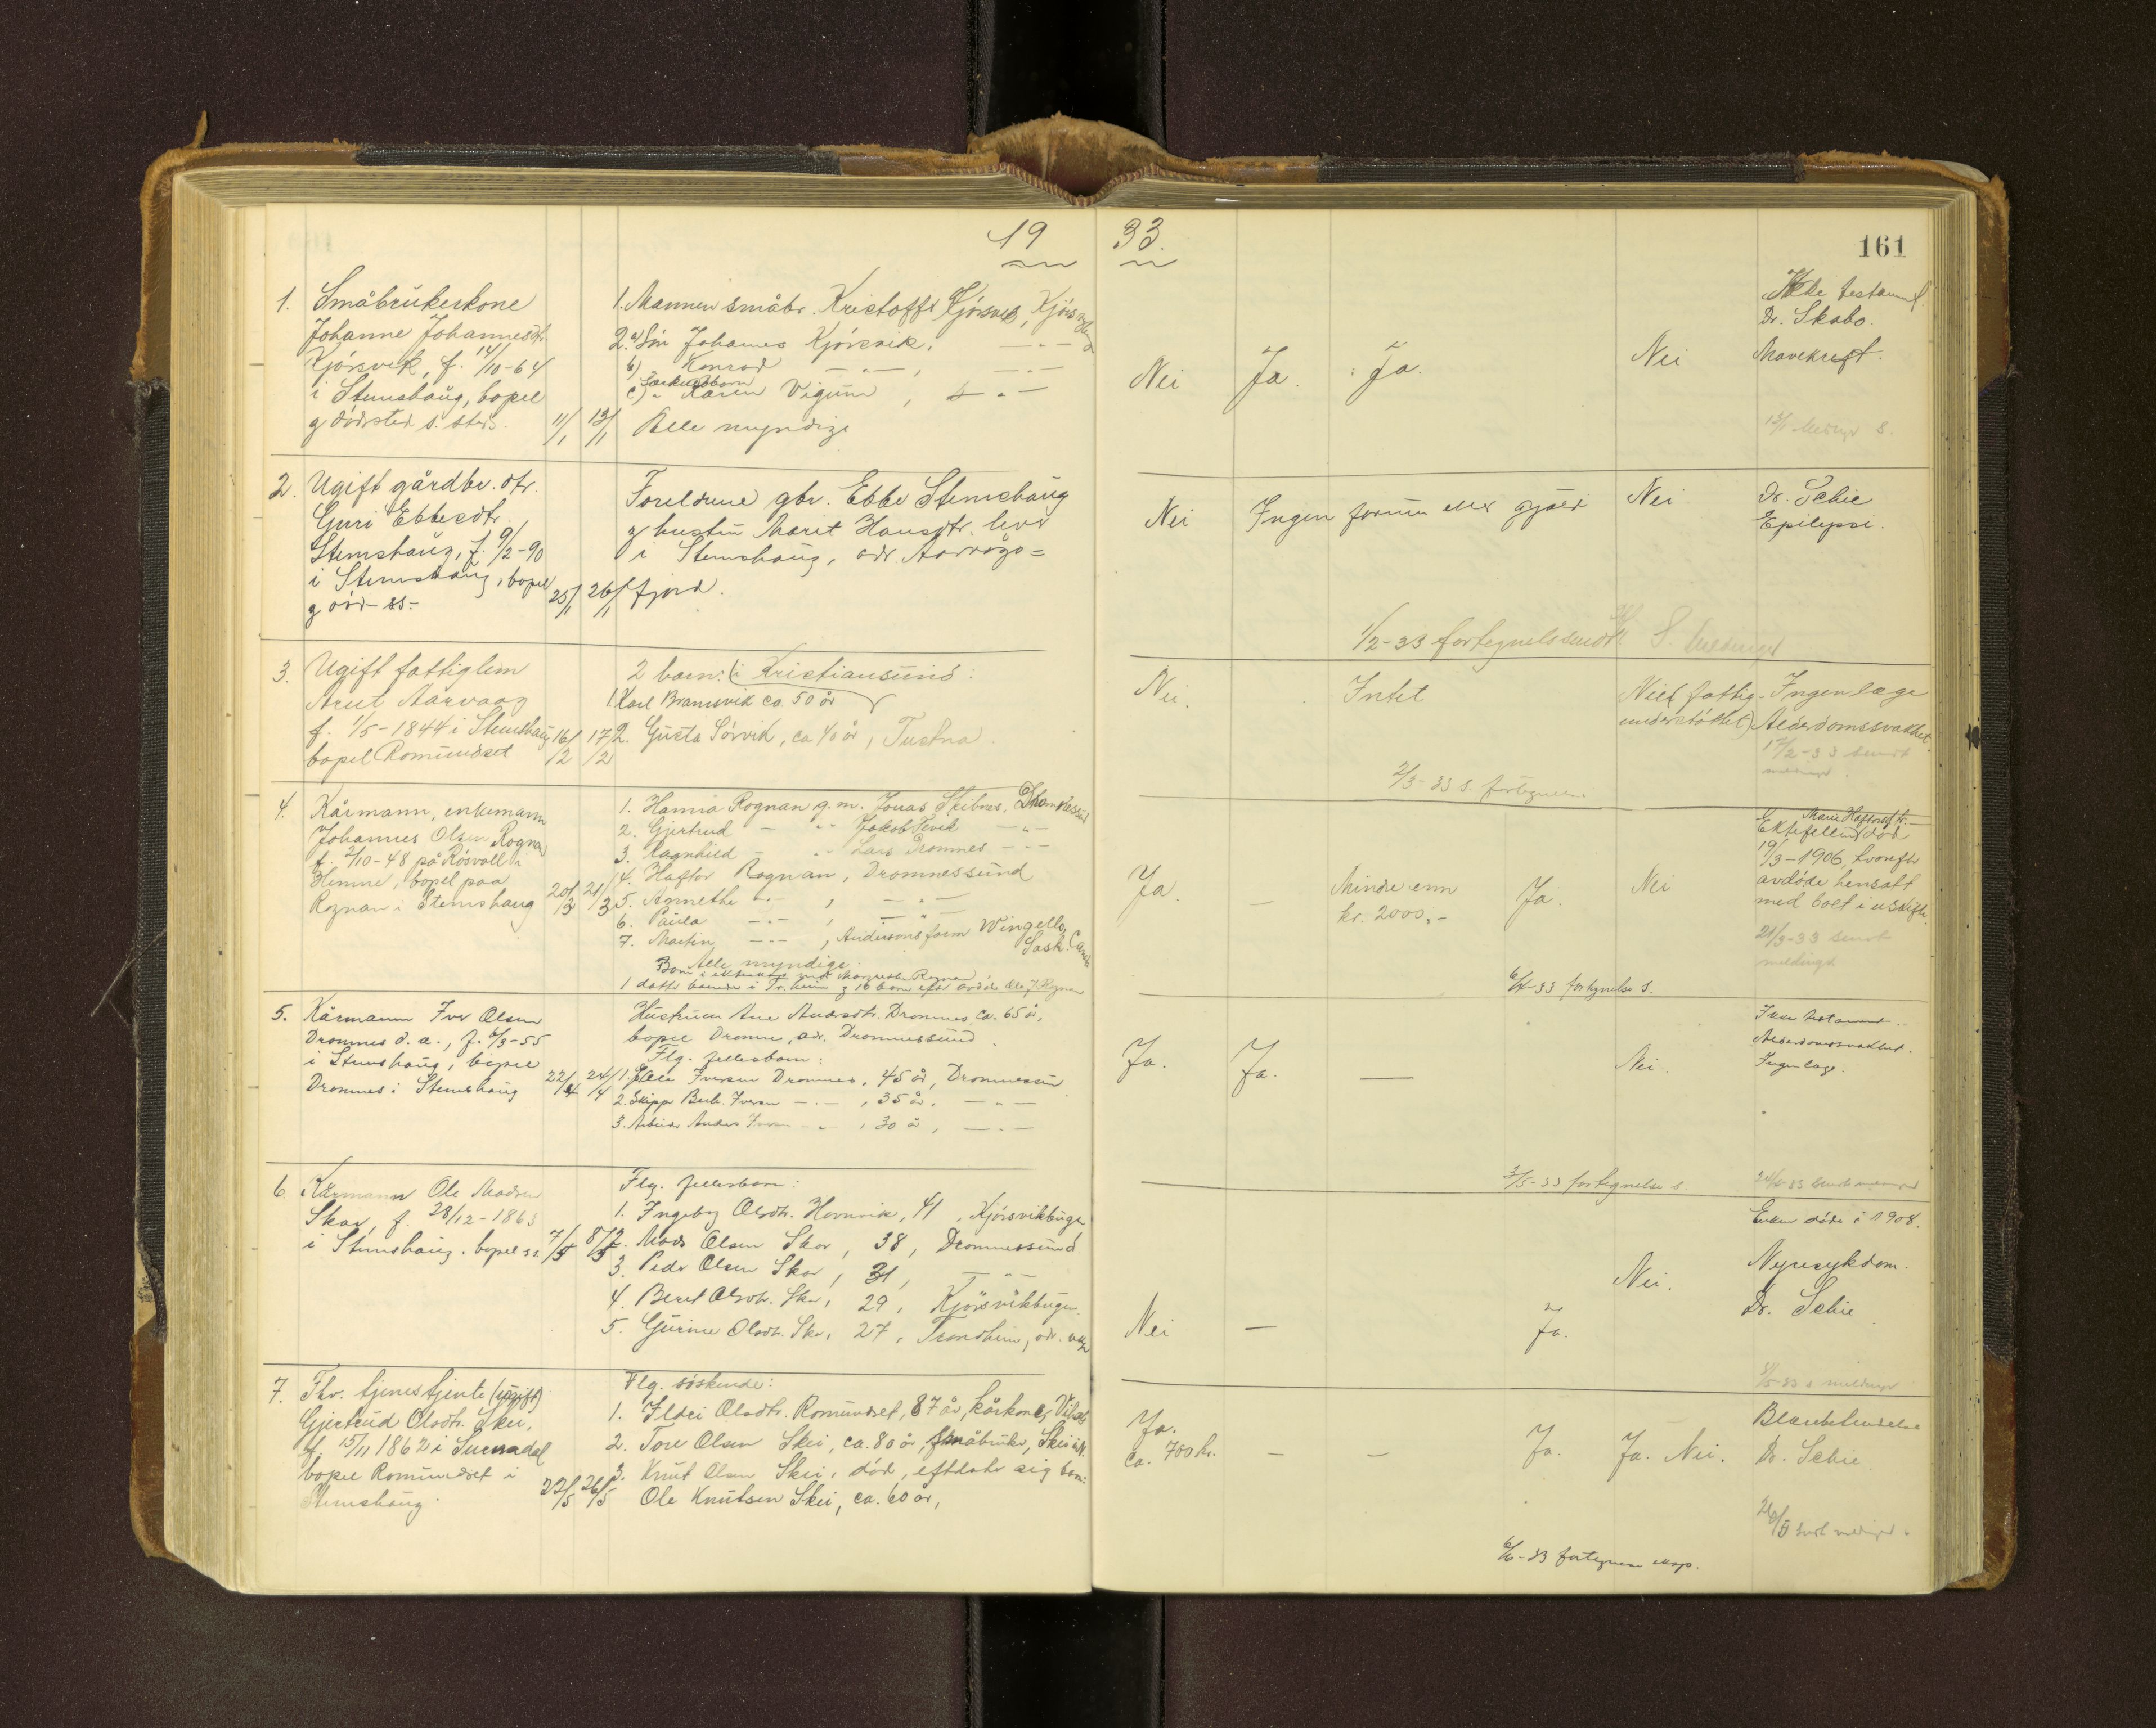 19 33.
161
1. Småbrukerkone
Johanne Johannesdtr.
Kjörsvik, f. 14/10-64
i Stemshaug, bopel
og dödsted s. sted.
11/1 13/1
1. Mannen småbr. Kristoffer Kjörsvik,
2. a) Sön Johannes Kjörsvik, —"—
b) Konrad —"—, —"—
Særkullbarn
c) " Karen Vigum, —"—
Alle myndige
Nei Ja. Ja. Nei
Ikke testament.
Dr. Skabo.
Mavekreft.
13/1 s.
2. Ugift gårdbr. dtr.
Guri Ebbesdtr.
Stemshaug, f. 9/2-90
i Stemshaug, bopel
og död ss.
25/1 26/1
Foreldrene gbr. Ebbe Stemshaug
og hustru Marit Hansdtr. lever
i Stemshaug, adr. Aarvågs=
fjord.
Nei Ingen formue eller gjæld Nei
Dr. Schie
Epilepsi.
1/2-33 fortegnelse sendt
3. Ugift fattiglem
Arut Aarvaag
f. 1/5-1844 i Stemshaug
bopel Romundset
16/2 17/2
2 barn: (i Kristiansund:
1. Karl Bramsvik ca. 50 år
2. Gusta Sörvik, ca 40 år, Tustna.
Nei. Intet
Nei (fattig-
understöttet)
Ingen læge
Alderdomssvakhet.
17/2-33 sendt
2/3-33 s. fortegnelse.
4. Kårmann, enkemann
Johannes Olsen Rognan
f. 2/10-48 på Rösvoll i
Hemne, bopel paa
Rognan i Stemshaug
20/3 21/3
1. Hanna Rognan g. m. Jonas Skibnes. Dromnessund
2. Gjertrud — " — Jakob Tevik —"—
3. Ragnhild — " — Lars Dromnes —"—
4. Haftor Rognan, Dromnessund
5. Annethe —"—, —"—
6. Paula —"—, —"—
7. Martin —"—, Andersons farm Wingello,
Sask. Canada
Alle myndige.
Ja. — Mindre enn
kr. 2000,- Ja. Nei
Ektefellen död
19/3-1906, hvorefter
avdöde hensatt
med boet i uskifte.
21/3-33 sendt
6/4-33 fortegnelse s.
5. Kårmann Iver Olsen
Dromnes d. e., f. 6/3-55
i Stemshaug, bopel
Dromnes i Stemshaug
22/4 24/4
Hustruen Ane Andersdtr. Dromnes, ca. 65 år,
bopel Dromnes, adr. Dromnessund.
Flg. fellesbarn:
1. Iversen Dromnes, 45 år, Dromnessund
2. Skipper Iversen —"—, 35 år, —"—
3. Arbeider Anders Iversen —"—, 30 år, —"—
Ja. Ja. — Nei.
Ikke testament.
Alderdomssvakhet.
Ingen læge.
3/5-33 fortegnelse s.
6. Kårmann Ole Madsen
Skar, f. 28/12-1863
i Stemshaug. bopel ss.
7/5 8/5
Flg. fellesbarn:
1. Ingeborg Olsdtr. Hovnvik, 41, Kjörsvikbugen
2. Mads Olsen Skar, 38, Dromnessund
3. Peder Olsen Skar, 31, —"—
4. Beret Olsdtr. Skar, 29, Kjörsvikbugen
5. Gurine Olsdtr. Skar, 27, Trondheim, adr.
Nei — Ja. Nei.
døde i 1908.
Nyresykdom.
Dr. Schie
7. Fhv. tjenestjente (ugift)
Gjertrud Olsdtr. Skei,
f. 15/11 1862 i Surnadal
bopel Romundset i
Stemshaug.
22/5 26/5
Flg. söskende:
1. Ildri Olsdtr. Romundset, 87 år, kårkone,
2. Tore Olsen Skei, ca. 80 år, småbruker, Skei
3. Knut Olsen Skei, död, efterlater sig barn:
Ole Knutsen Skei, ca. 60 år,
Ja.
ca. 700 kr. — — Ja. Ja. Nei.
Blærebetendelse
Dr. Schie
6/6-33 fortegnelse eksp.